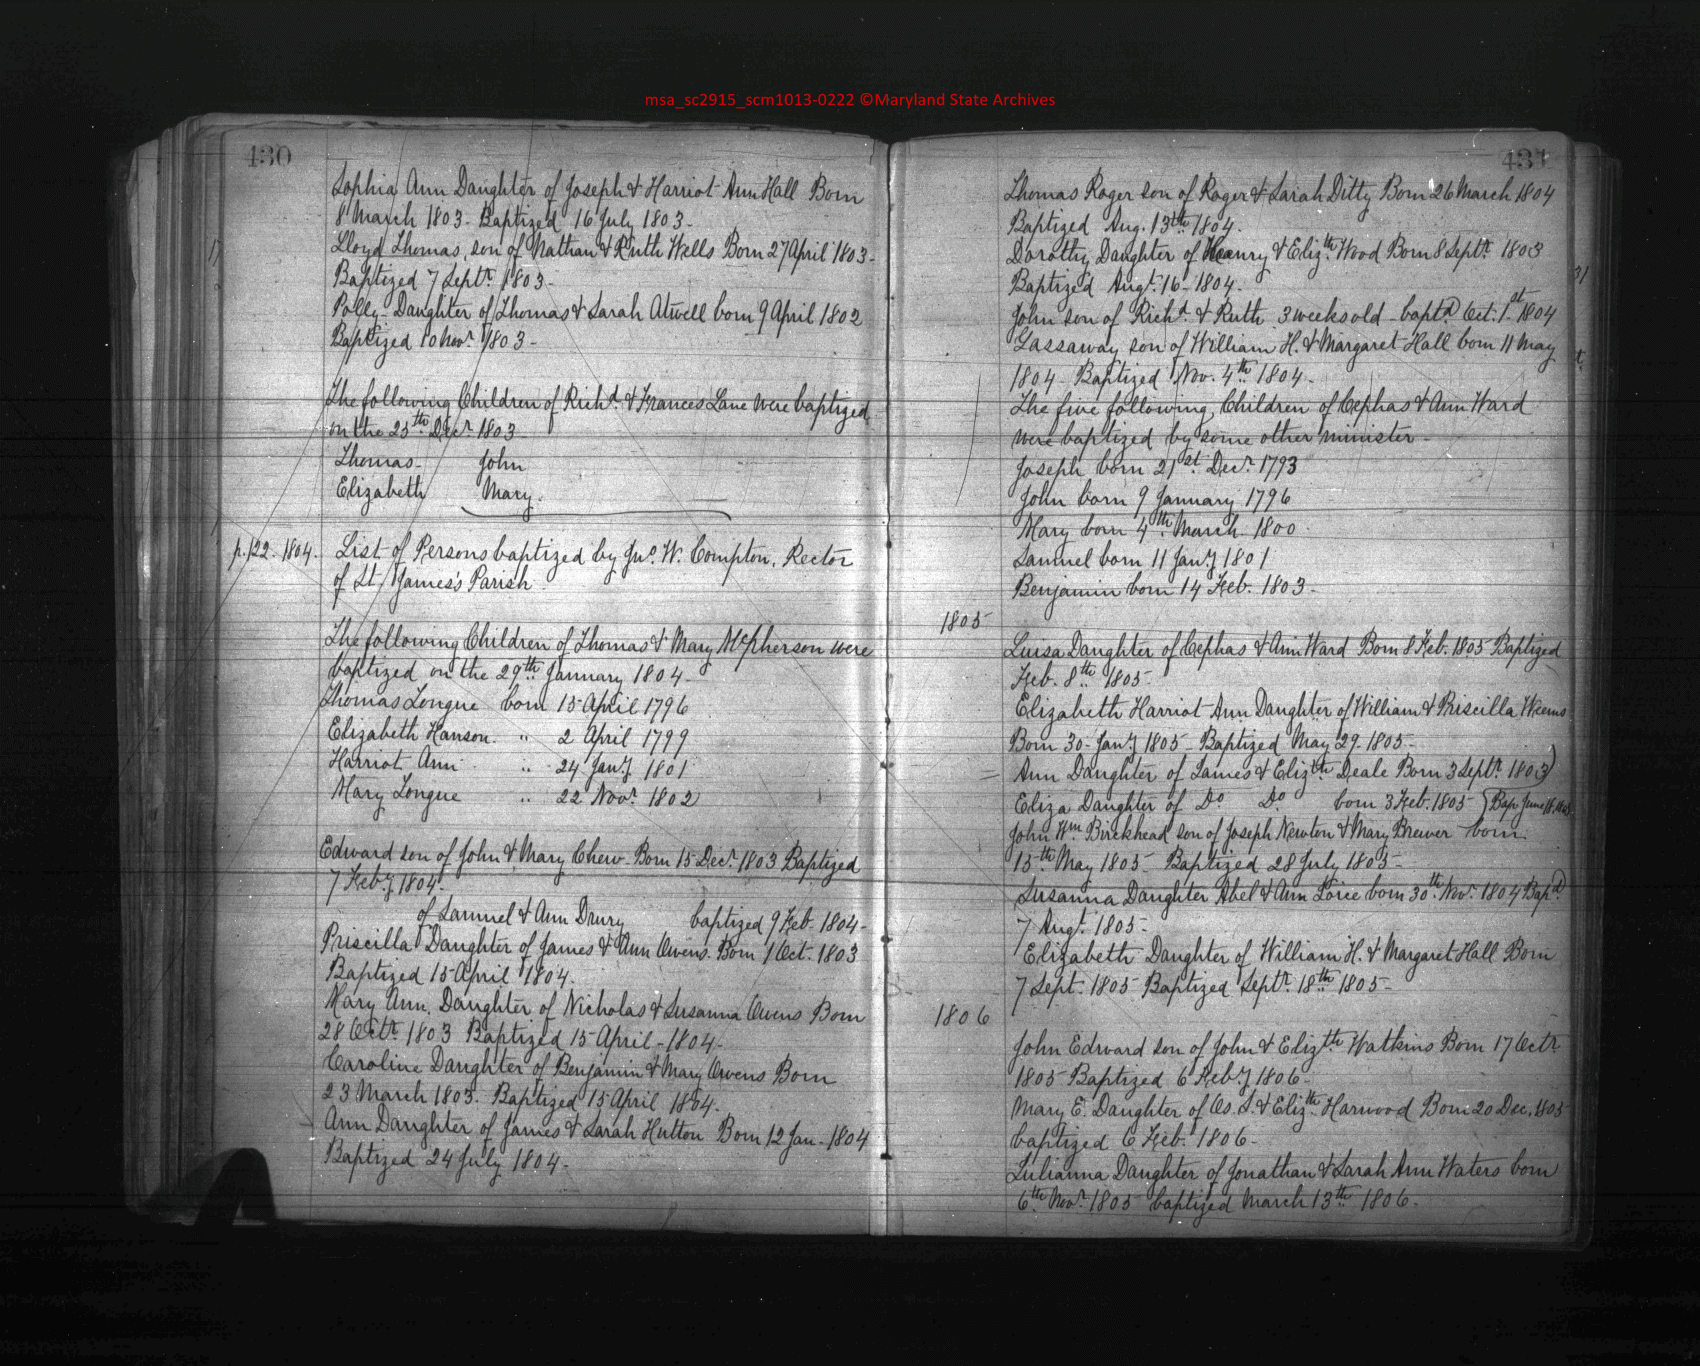 msa_sc2915_scm1013-0222 ©Maryland State Archives
430
Sophia Ann Daughter of Joseph & Harriot Ann Hall Born
8 March 1803 - Baptized 16 July 1803 -
Lloyd Thomas, son of Nathan & Ruth Wells Born 27 April 1803 -
Baptized 7 Septr. 1803 -
Polly - Daughter of Thomas & Sarah Atwell born 9 April 1802
Baptized 10 Novr. 1803 -
The following Children of Richd. & Frances Lane were baptized
on the 25th Decr. 1803 -
Thomas - John
Elizabeth Mary.
p. 122. 1804. List of Persons baptized by Jno. W. Compton, Rector
of St. James's Parish
The following Children of Thomas & Mary McPherson were
baptized on the 29th January 1804 -
Thomas Tongue born 15 April 1796
Elizabeth Hanson " 2 April 1799
Harriot Ann " 24 Jany 1801
Mary Tongue " 22 Novr. 1802
Edward son of John & Mary Chew - Born 15 Decr. 1803 Baptized
7 Feby 1804.
of Samuel & Ann Drury baptized 9 Feb. 1804 -
Priscilla Daughter of James & Ann Owens. Born 1 Oct. 1803
Baptized 15 April 1804.
Mary Ann, Daughter of Nicholas & Susanna Owens Born
28 Octr. 1803 Baptized 15 April - 1804 -
Caroline Daughter of Benjamin & Mary Owens Born
23 March 1803. Baptized 15 April 1804.
Ann Daughter of James & Sarah Hutton Born 12 Jan - 1804
Baptized 24 July 1804 -
431
Thomas Roger son of Roger & Sarah Ditty Born 26 March 1804
Baptized Aug. 13th 1804.
Dorothy Daughter of Henry & Elizth. Wood Born 8 Septr. 1803
Baptized Augt. 16 - 1804 -
John son of Richd. & Ruth 3 weeks old - baptd. Oct. 1st. 1804
Gassaway son of William H. & Margaret Hall born 11 May
1804 - Baptized Nov. 4th 1804 -
The five following Children of Cephas & Ann Ward
were baptized by some other minister -
Joseph born 21st Decr. 1793
John born 9 January 1796
Mary born 4th March 1800
Samuel born 11 Jany 1801
Benjamin born 14 Feb. 1803 -
1805
Luisa Daughter of Cephas & Ann Ward Born 8 Feb. 1805 Baptized
Feb. 8th 1805 -
Elizabeth Harriot Ann Daughter of William & Priscilla Weems
Born 30 - Jany 1805 - Baptized May 29 - 1805 -
Ann Daughter of James & Elizth Deale Born 3 Septr. 1803)
Eliza Daughter of Do Do born 3 Feb. 1805 Bap June
John Wm. Birckhead son of Joseph Newton & Mary Brewer born
15th May 1805 - Baptized 28 July 1805 -
Susanna Daughter Abel & Ann born 30th Novr. 1804 Bapd
7 Augt. 1805 -
Elizabeth Daughter of William H. & Margaret Hall Born
7 Sept. 1805 Baptized Septr. 18th 1805 -
1806
John Edward son of John & Elizth Watkins Born 17 Octr.
1805 Baptized 6 Feby 1806 -
Mary E. Daughter of Os. S. & Elizth. Harwood Born 20 Dec. 1805
baptized 6 Feb. 1806 -
Julianna Daughter of Jonathan & Sarah Ann Waters born
6th Novr. 1805 baptized March 13th 1806 -